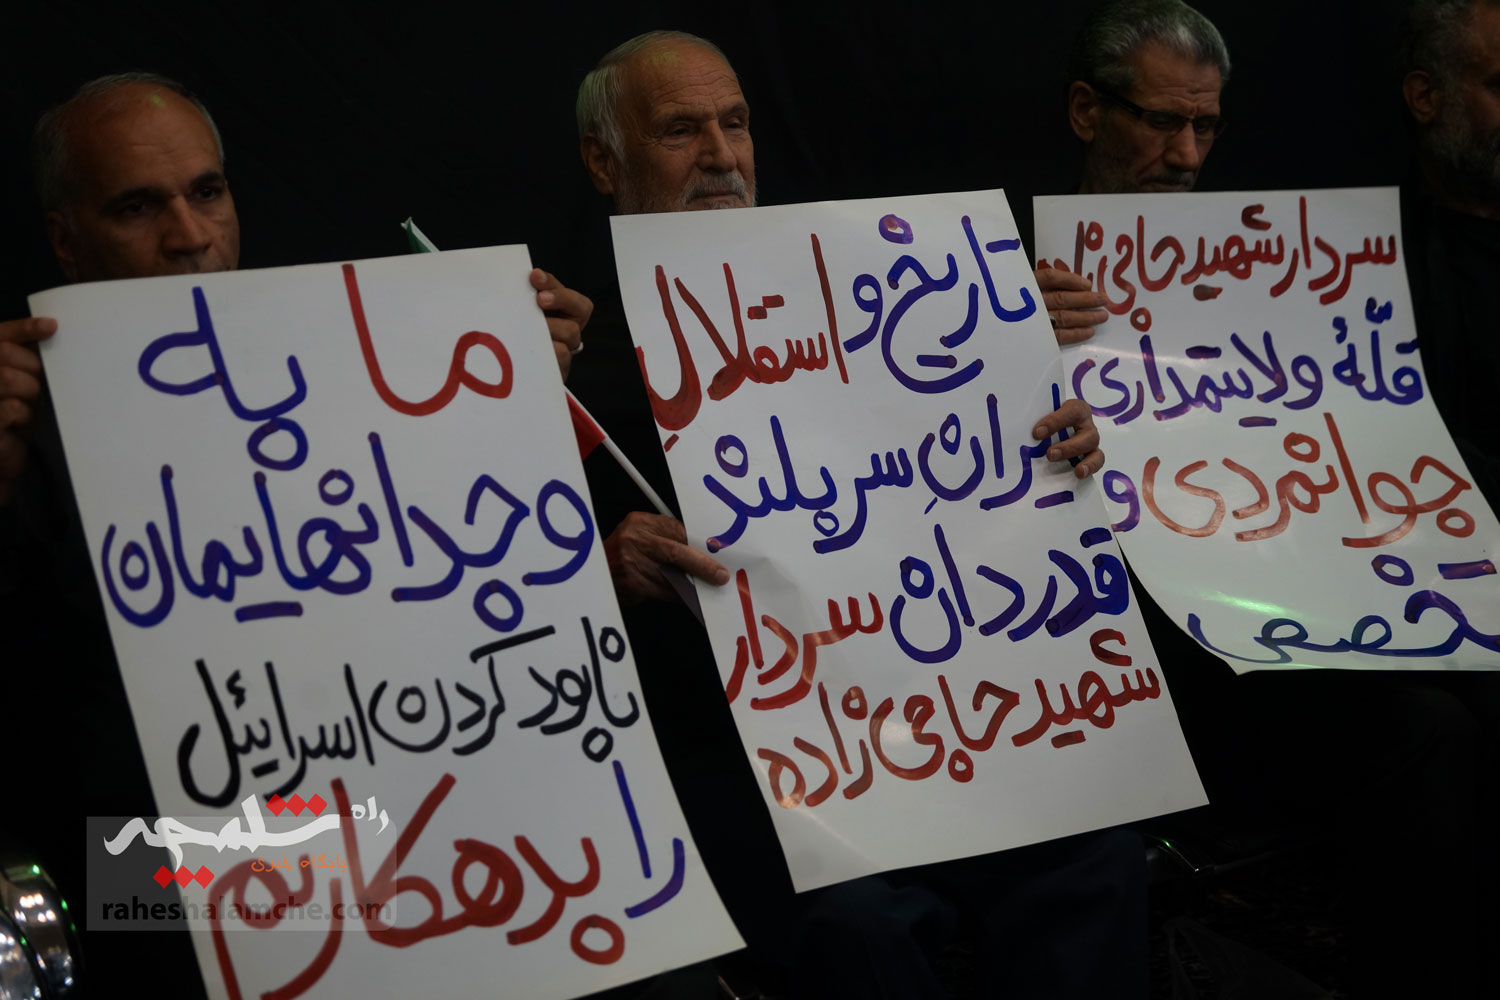 ما به
وجدانهایمان
نابود کردن اسرائیل
را بدهکاریم
تاریخ و استقلالِ
ایرانِ سربلند
قدردان سردار
شهید حاجی‌زاده
سردار شهید حاجی‌زاده
قلّهٔ ولایتمداری
و جوانمردی
تخصص
راه شلمچه
پایگاه خبری
raheshalamche.com